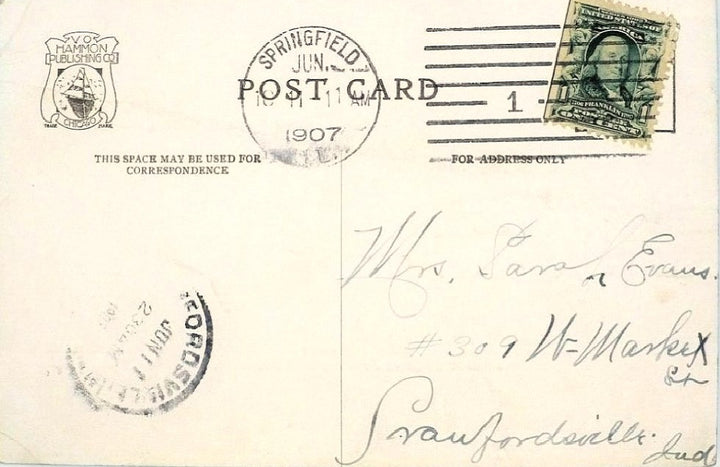 V.O.
HAMMON
PUBLISHING CO
CHICAGO
TRADE MARK
SPRINGFIELD
JUN
11 AM
1907
POST CARD
1
UNITED STATES OF
AMERICA
FRANKLIN
THIS SPACE MAY BE USED FOR
CORRESPONDENCE
FOR ADDRESS ONLY
Mrs. Sara Evans.
# 309 W- Market
St
Crawfordsville.
Ind
FORDSVILLE
JUN 11
230